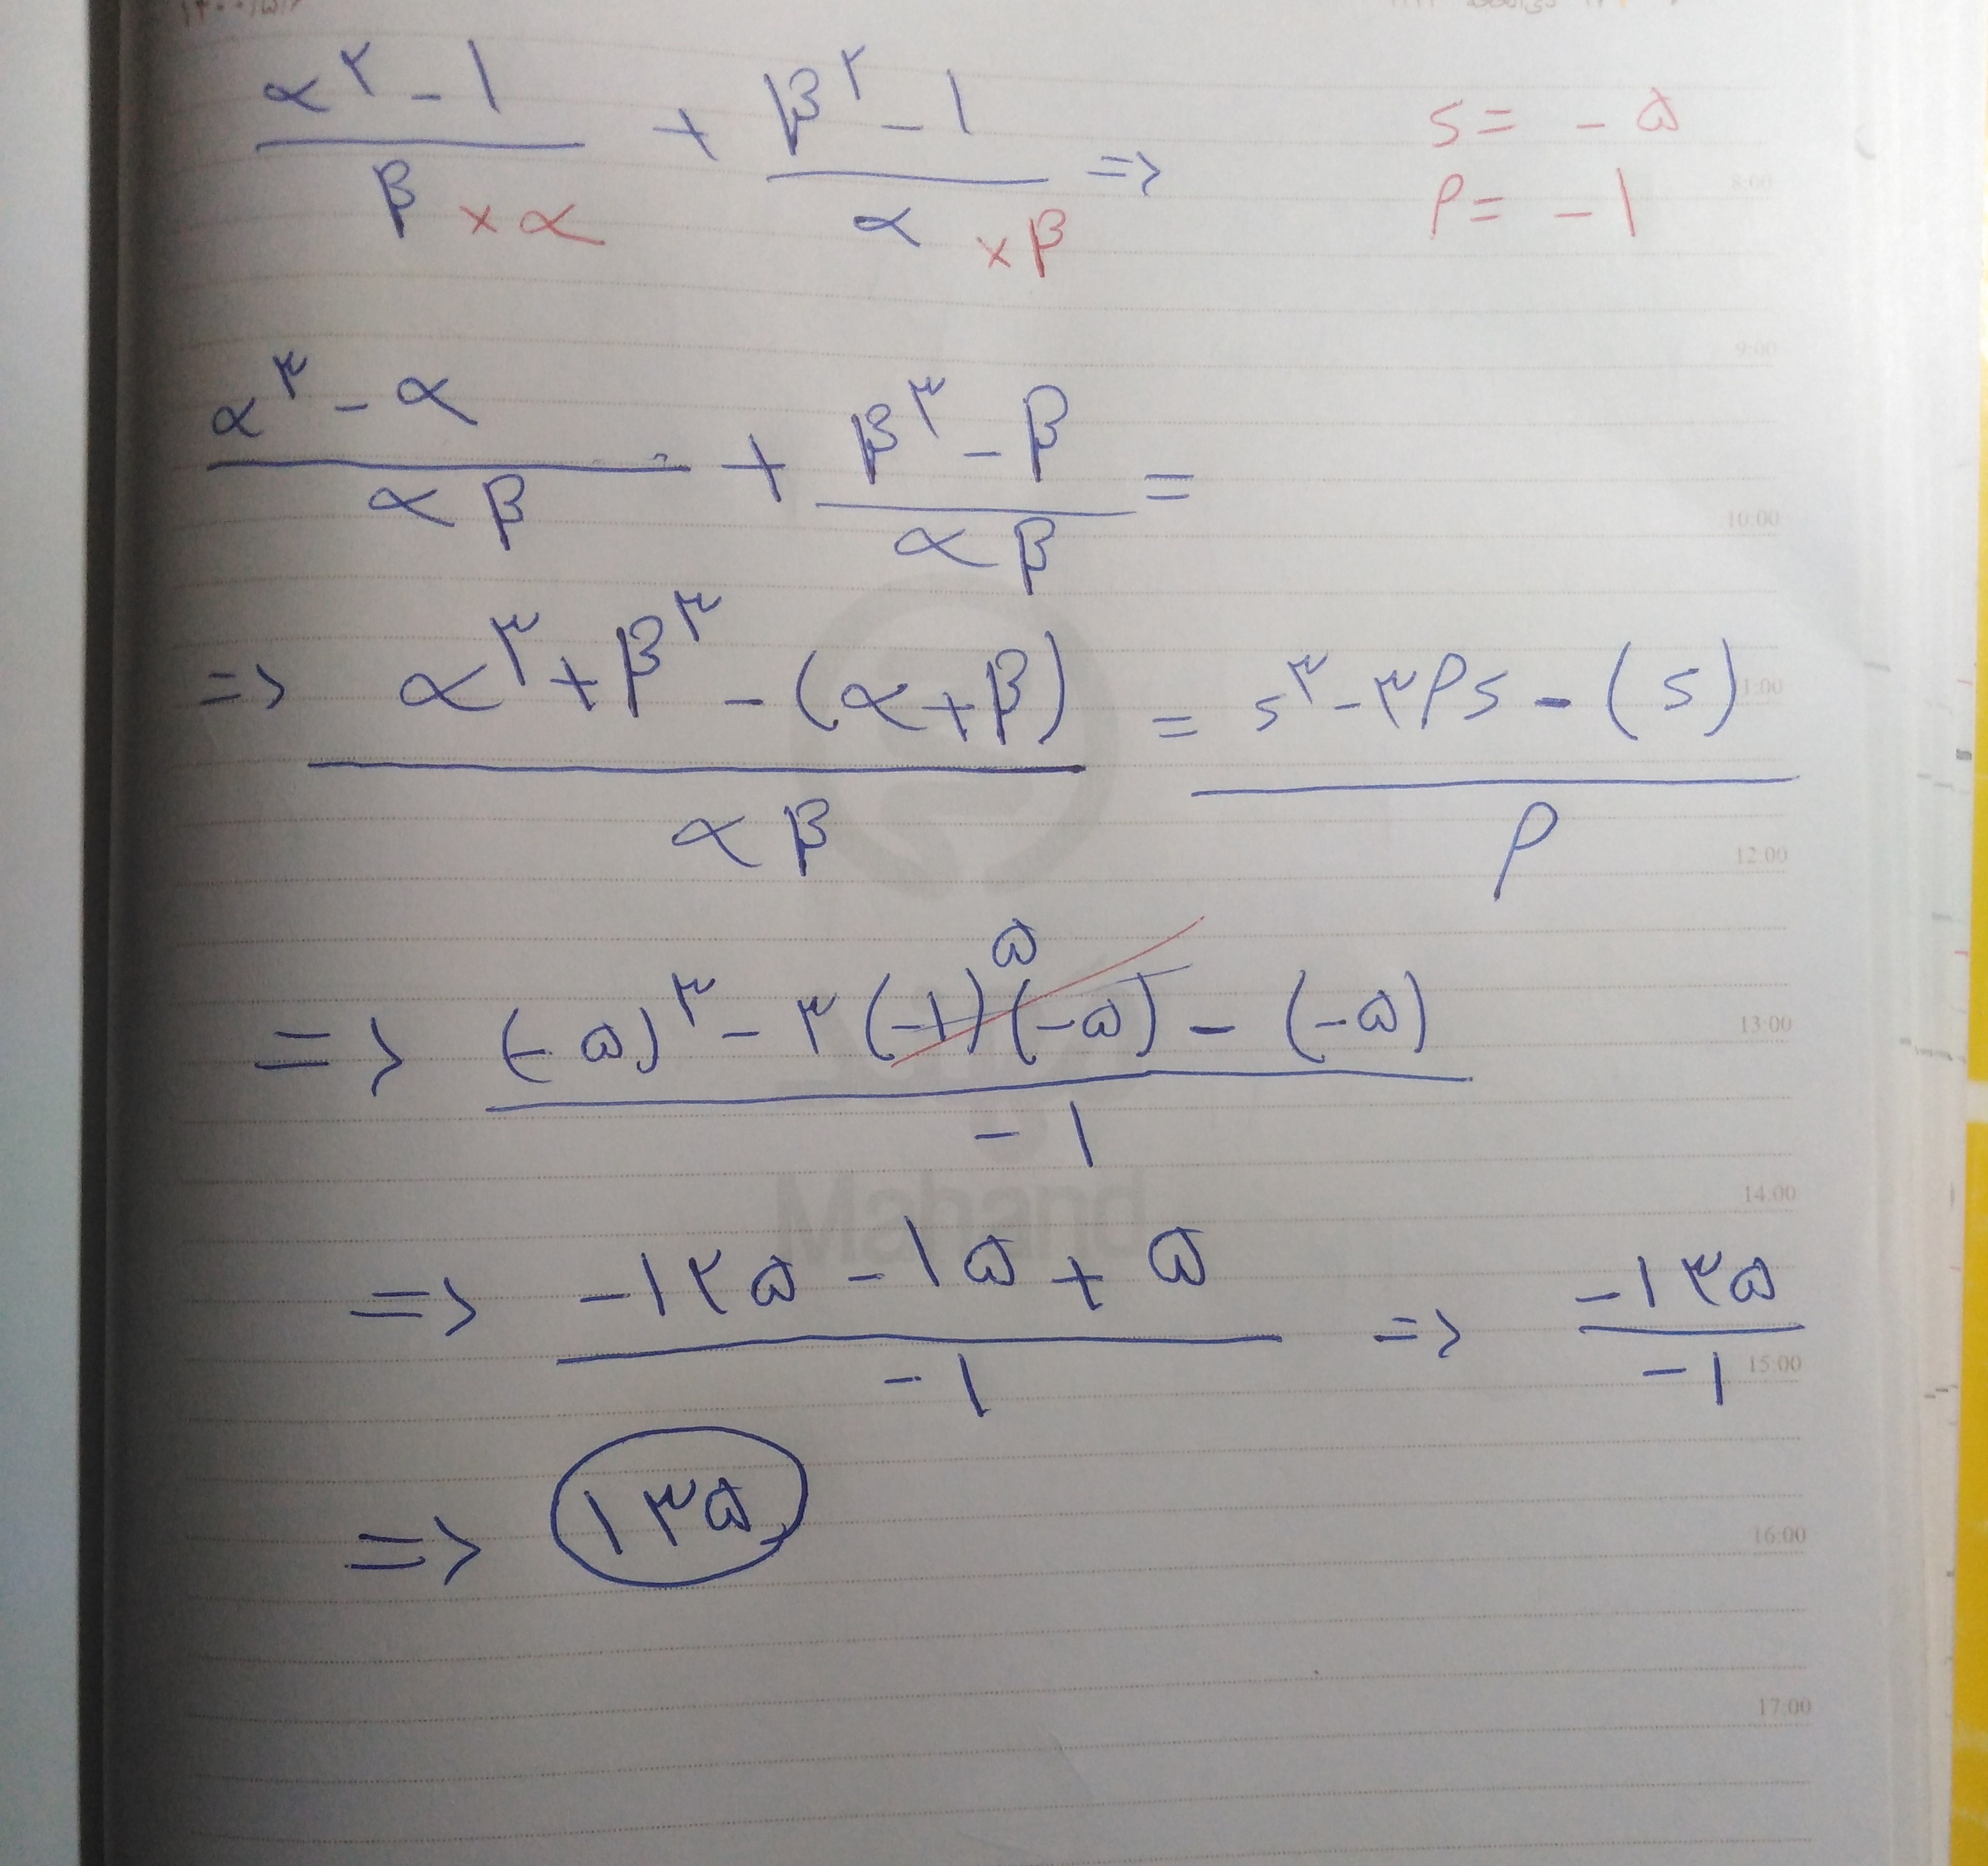 α^۲ - ۱ / β × α + β^۲ - ۱ / α × β =>
S = - ۵
P = - ۱
8:00
9:00
α^۳ - α / α β + β^۳ - β / α β =
10:00
=> α^۳ + β^۳ - (α + β) / α β = S^۳ - ۳PS - (S) / P
11:00
12:00
۵
=> (-۵)^۳ - ۳(-۱)(-۵) - (-۵) / -۱
13:00
Mahand
14:00
=> -۱۲۵ - ۱۵ + ۵ / -۱ => -۱۳۵ / -۱
15:00
=> ۱۳۵
16:00
17:00